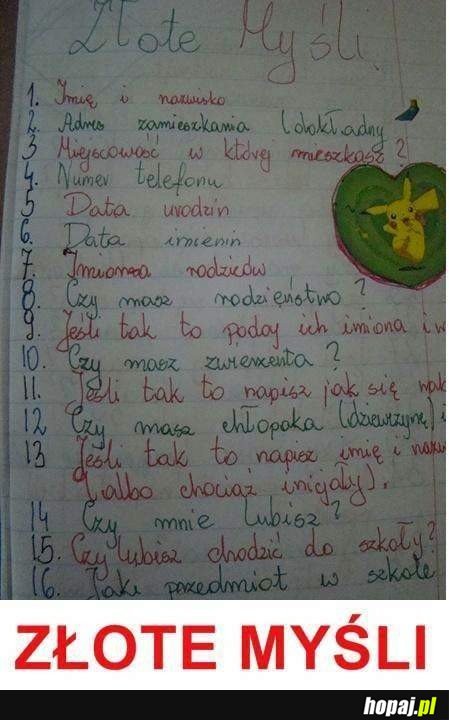 Złote Myśli
1. Imię i nazwisko
2. Adres zamieszkania (dokładny
3 Miejscowość w której mieszkasz?
4. Numer telefonu
5 Data urodzin
6. Data imienin
7. Imiona rodziców
8. Czy masz rodzieństwo?
9. Jeśli tak to podaj ich imiona i w
10. Czy masz zwierzenta?
11. Jeśli tak to napisz jak się
12 Czy masz chłopaka (dziewczynę) i
13 Jeśli tak to napisz imię i nazw
(albo chociaż inicjały).
14 Czy mnie lubisz?
15. Czy lubisz chodzić do szkoły?
16. Jaki przedmiot w szkole
ZŁOTE MYŚLI
hopaj.pl